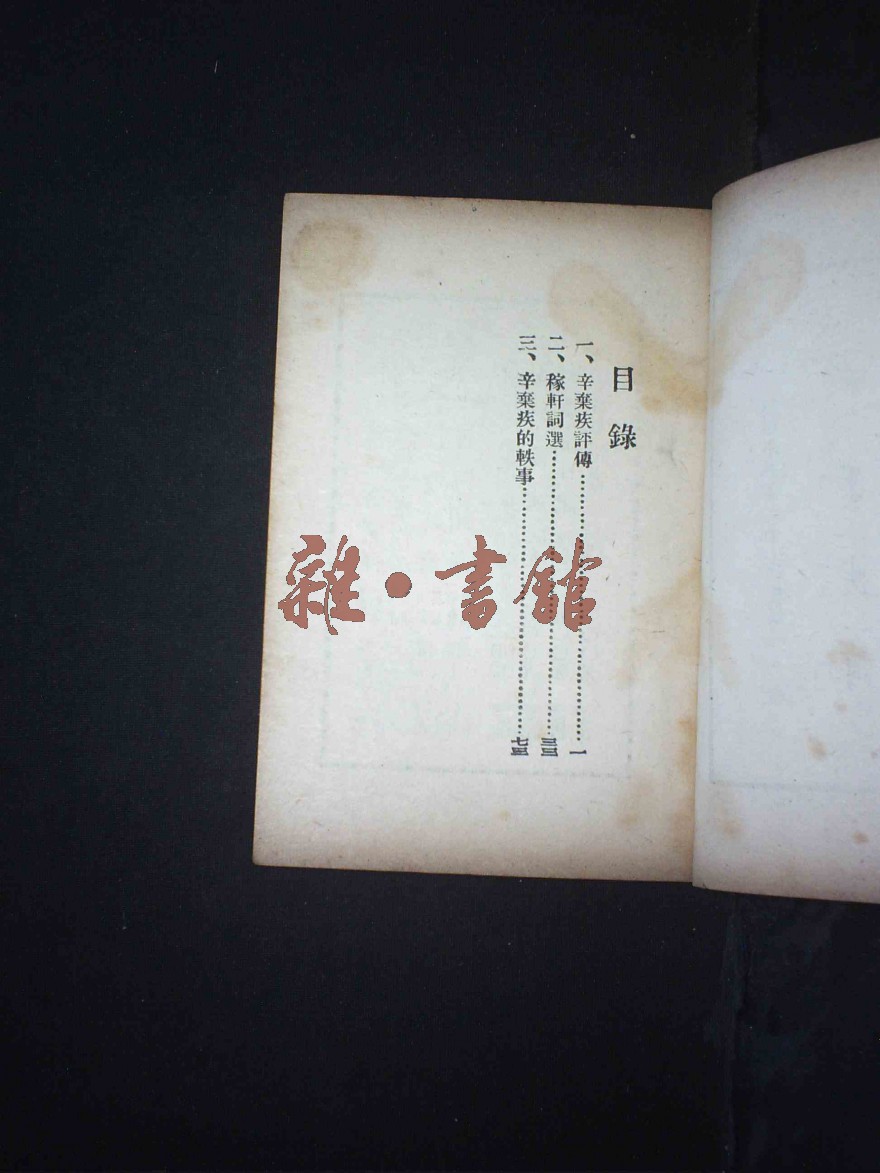 目錄
一、辛棄疾評傳……一
二、稼軒詞選……三三
三、辛棄疾的軼事……
雜·書館